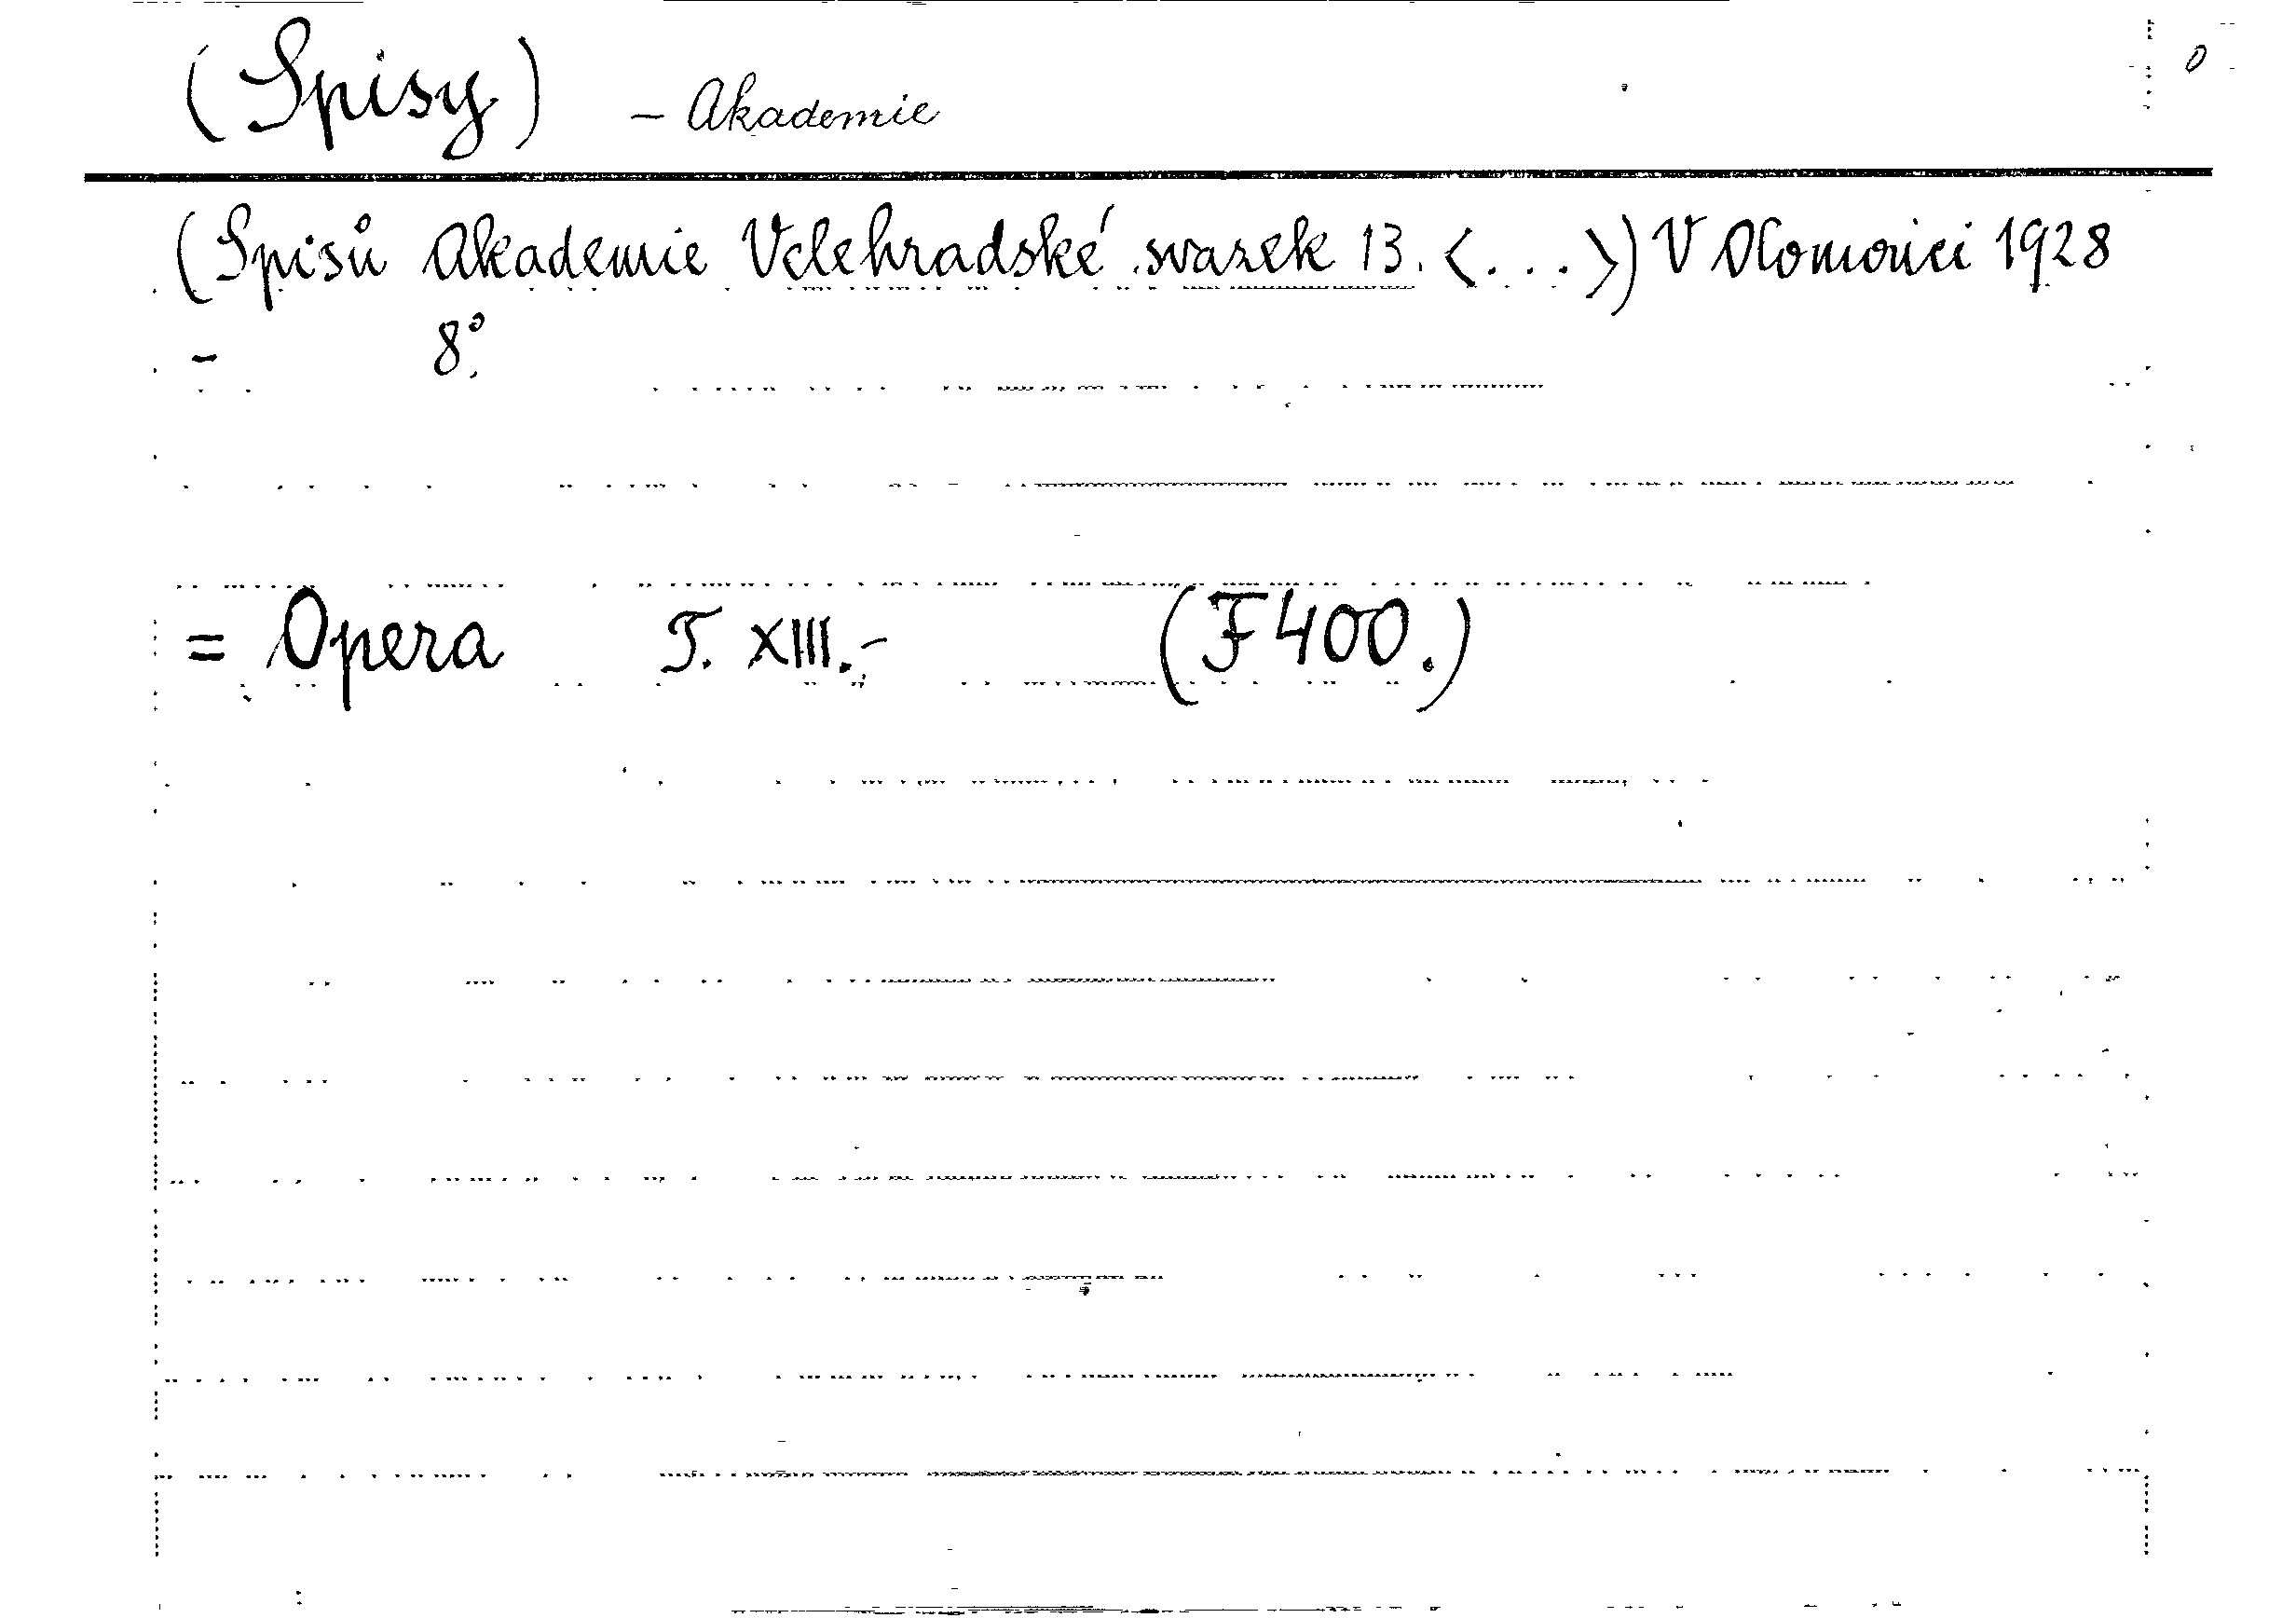 (Spisy) – Akademie 0
(Spisů Akademie Velehradské svazek 13. <...>) V Olomouci 1928
– 8°.
= Opera T. XIII.– (F 400.)